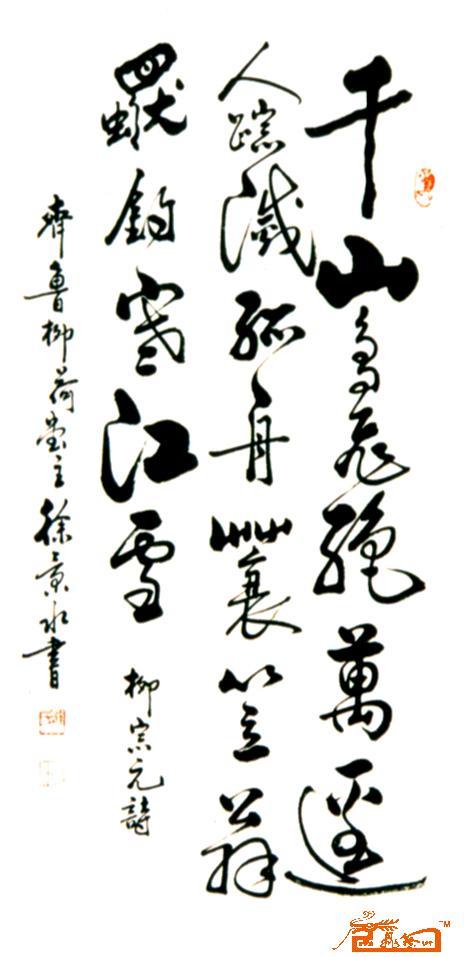 千山鸟飛絕萬逕
人踪滅孤舟蓑笠翁
獨釣寒江雪
柳宗元詩
齊魯柳荷堂主徐景水書